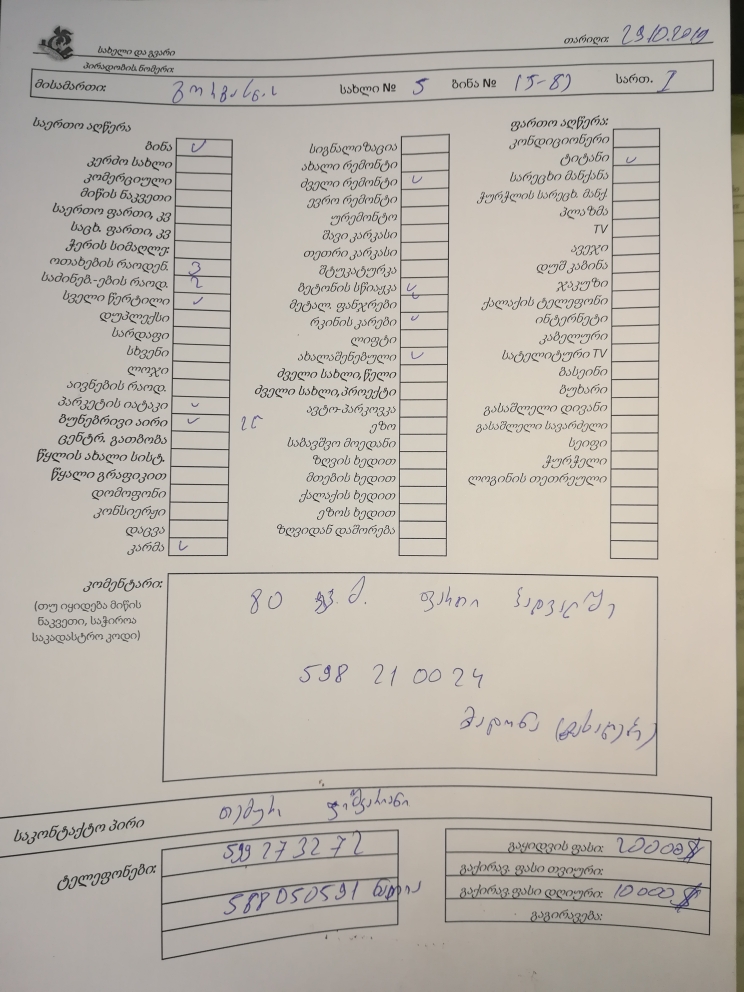 თარიღი: 29.10.2019
სახელი და გვარი
პირადობის ნომერი:
მისამართი: სახლი № 5 ბინა № (5-8) სართ. I
საერთო აღწერა
ბინა ✓
კერძო სახლი
კომერციული
მიწის ნაკვეთი
საერთო ფართი, კვ
საცხ. ფართი, კვ
ჭერის სიმაღლე:
ოთახების რაოდენ. 3
საძინებ.-ების რაოდ. 2
სველი წერტილი ✓
დუპლექსი
სარდაფი
სხვენი
ლოჯი
აივნების რაოდ.
პარკეტის იატაკი ✓
ბუნებრივი აირი ✓
ცენტრ. გათბობა
წყლის ახალი სისტ.
წყალი გრაფიკით
დომოფონი
კონსიერჟი
დაცვა
კარმა ✓
სიგნალიზაცია
ახალი რემონტი
ძველი რემონტი ✓
ევრო რემონტი
ურემონტო
შავი კარკასი
თეთრი კარკასი
შტუკატურკა
ბეტონის სწიაჟკა ✓
მეტალ. ფანჯრები ✓
რკინის კარები ✓
ლიფტი
ახალაშენებული ✓
ძველი სახლი,წელი
ძველი სახლი,პროექტი
ავტო-პარკოვკა
ეზო
საბავშვო მოედანი
ზღვის ხედით
მთების ხედით
ქალაქის ხედით
ეზოს ხედით
ზღვიდან დაშორება
ფართო აღწერა:
კონდიციონერი
ტიტანი ✓
სარეცხი მანქანა
ჭურჭლის სარეცხ. მანქ.
პლაზმა
TV
ავეჯი
დუშკაბინა
ჯაკუზი
ქალაქის ტელეფონი
ინტერნეტი
კაბელური
სატელიტური TV
ბასეინი
ბუხარი
გასაშლელი დივანი
გასაშლელი სავარძელი
სეიფი
ჭურჭელი
ლოგინის თეთრეული
კომენტარი:
(თუ იყიდება მიწის
ნაკვეთი, საჭიროა
საკადასტრო კოდი)
80 კვ.მ. ფართი
598 21 00 24
მადონა
საკონტაქტო პირი თემური
ტელეფონები:
599 273272
588050591 ნათია
გაყიდვის ფასი: 20000$
გაქირავ. ფასი თვიური:
გაქირავ.ფასი დღიური: 10000$
გაგირავება: